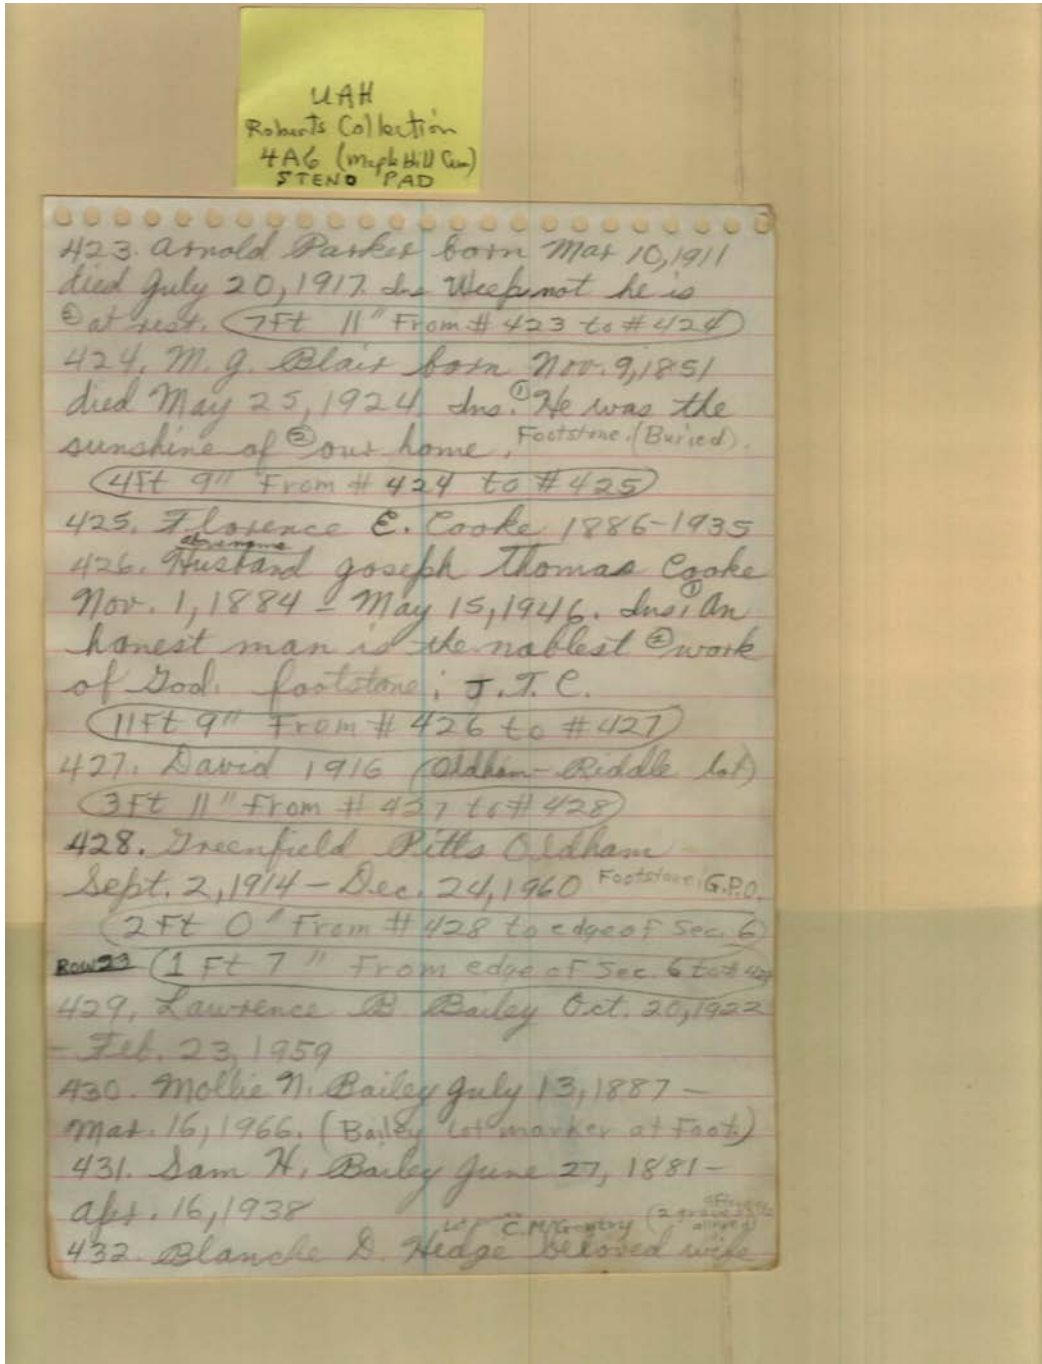 UAH
Roberts Collection
4A6 (Maple Hill Cem)
STENO PAD
423. Arnold Parker born Mar 10, 1911
died July 20, 1917. Ins Weep not he is
② at rest. (7Ft 11" From # 423 to # 424)
424. M. J. Blair born Nov. 9, 1851
died May 25, 1924. Ins. ① He was the
sunshine of ② our home. Footstone. (Buried).
(4Ft 9" From # 424 to # 425)
425. Florence E. Cooke 1886-1935
above name
426. Husband Joseph Thomas Cooke
Nov. 1, 1884 - May 15, 1946. Ins: ① An
honest man is the noblest ② work
of God. footstone; J.T.C.
(11Ft 9" From # 426 to # 427)
427. David 1916 (Oldham-Riddle lot)
(3Ft 11" From # 427 to # 428)
428. Greenfield Pitts Oldham
Sept. 2, 1914 - Dec. 24, 1960 Footstone: G.P.O.
(2 Ft 0" From # 428 to edge of Sec. 6)
ROW 23 (1 Ft 7" From edge of Sec. 6 to # 429
429. Lawrence B. Bailey Oct. 20, 1922
- Feb. 23, 1959
430. Mollie N. Bailey July 13, 1887 -
Mar. 16, 1966. (Bailey lot marker at Foot.)
431. Sam H. Bailey June 27, 1881 -
Apr. 16, 1938
Lot C. McGentry (2 graves
432. Blanche D. Hedge beloved wife